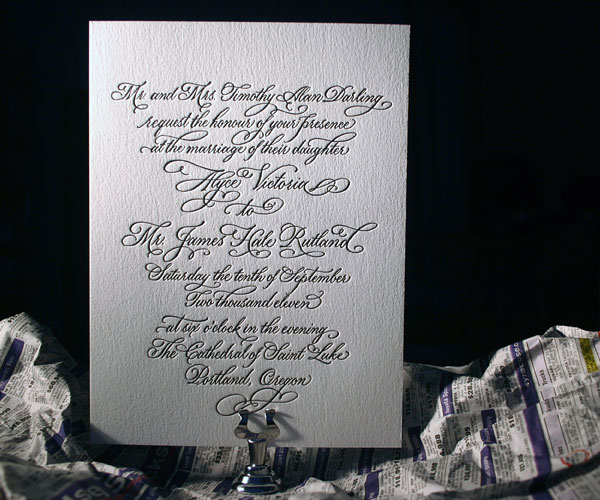 Mr. and Mrs. Timothy Alan Darling
request the honour of your presence
at the marriage of their daughter
Alyce Victoria
to
Mr. James Hale Rutland
Saturday the tenth of September
Two thousand eleven
at six o'clock in the evening
The Cathedral of Saint Luke
Portland, Oregon